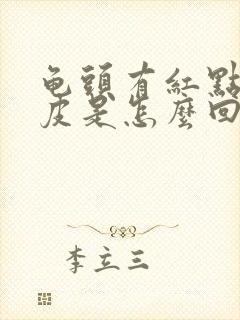 龟頭有紅點
皮是怎麼回
李立三